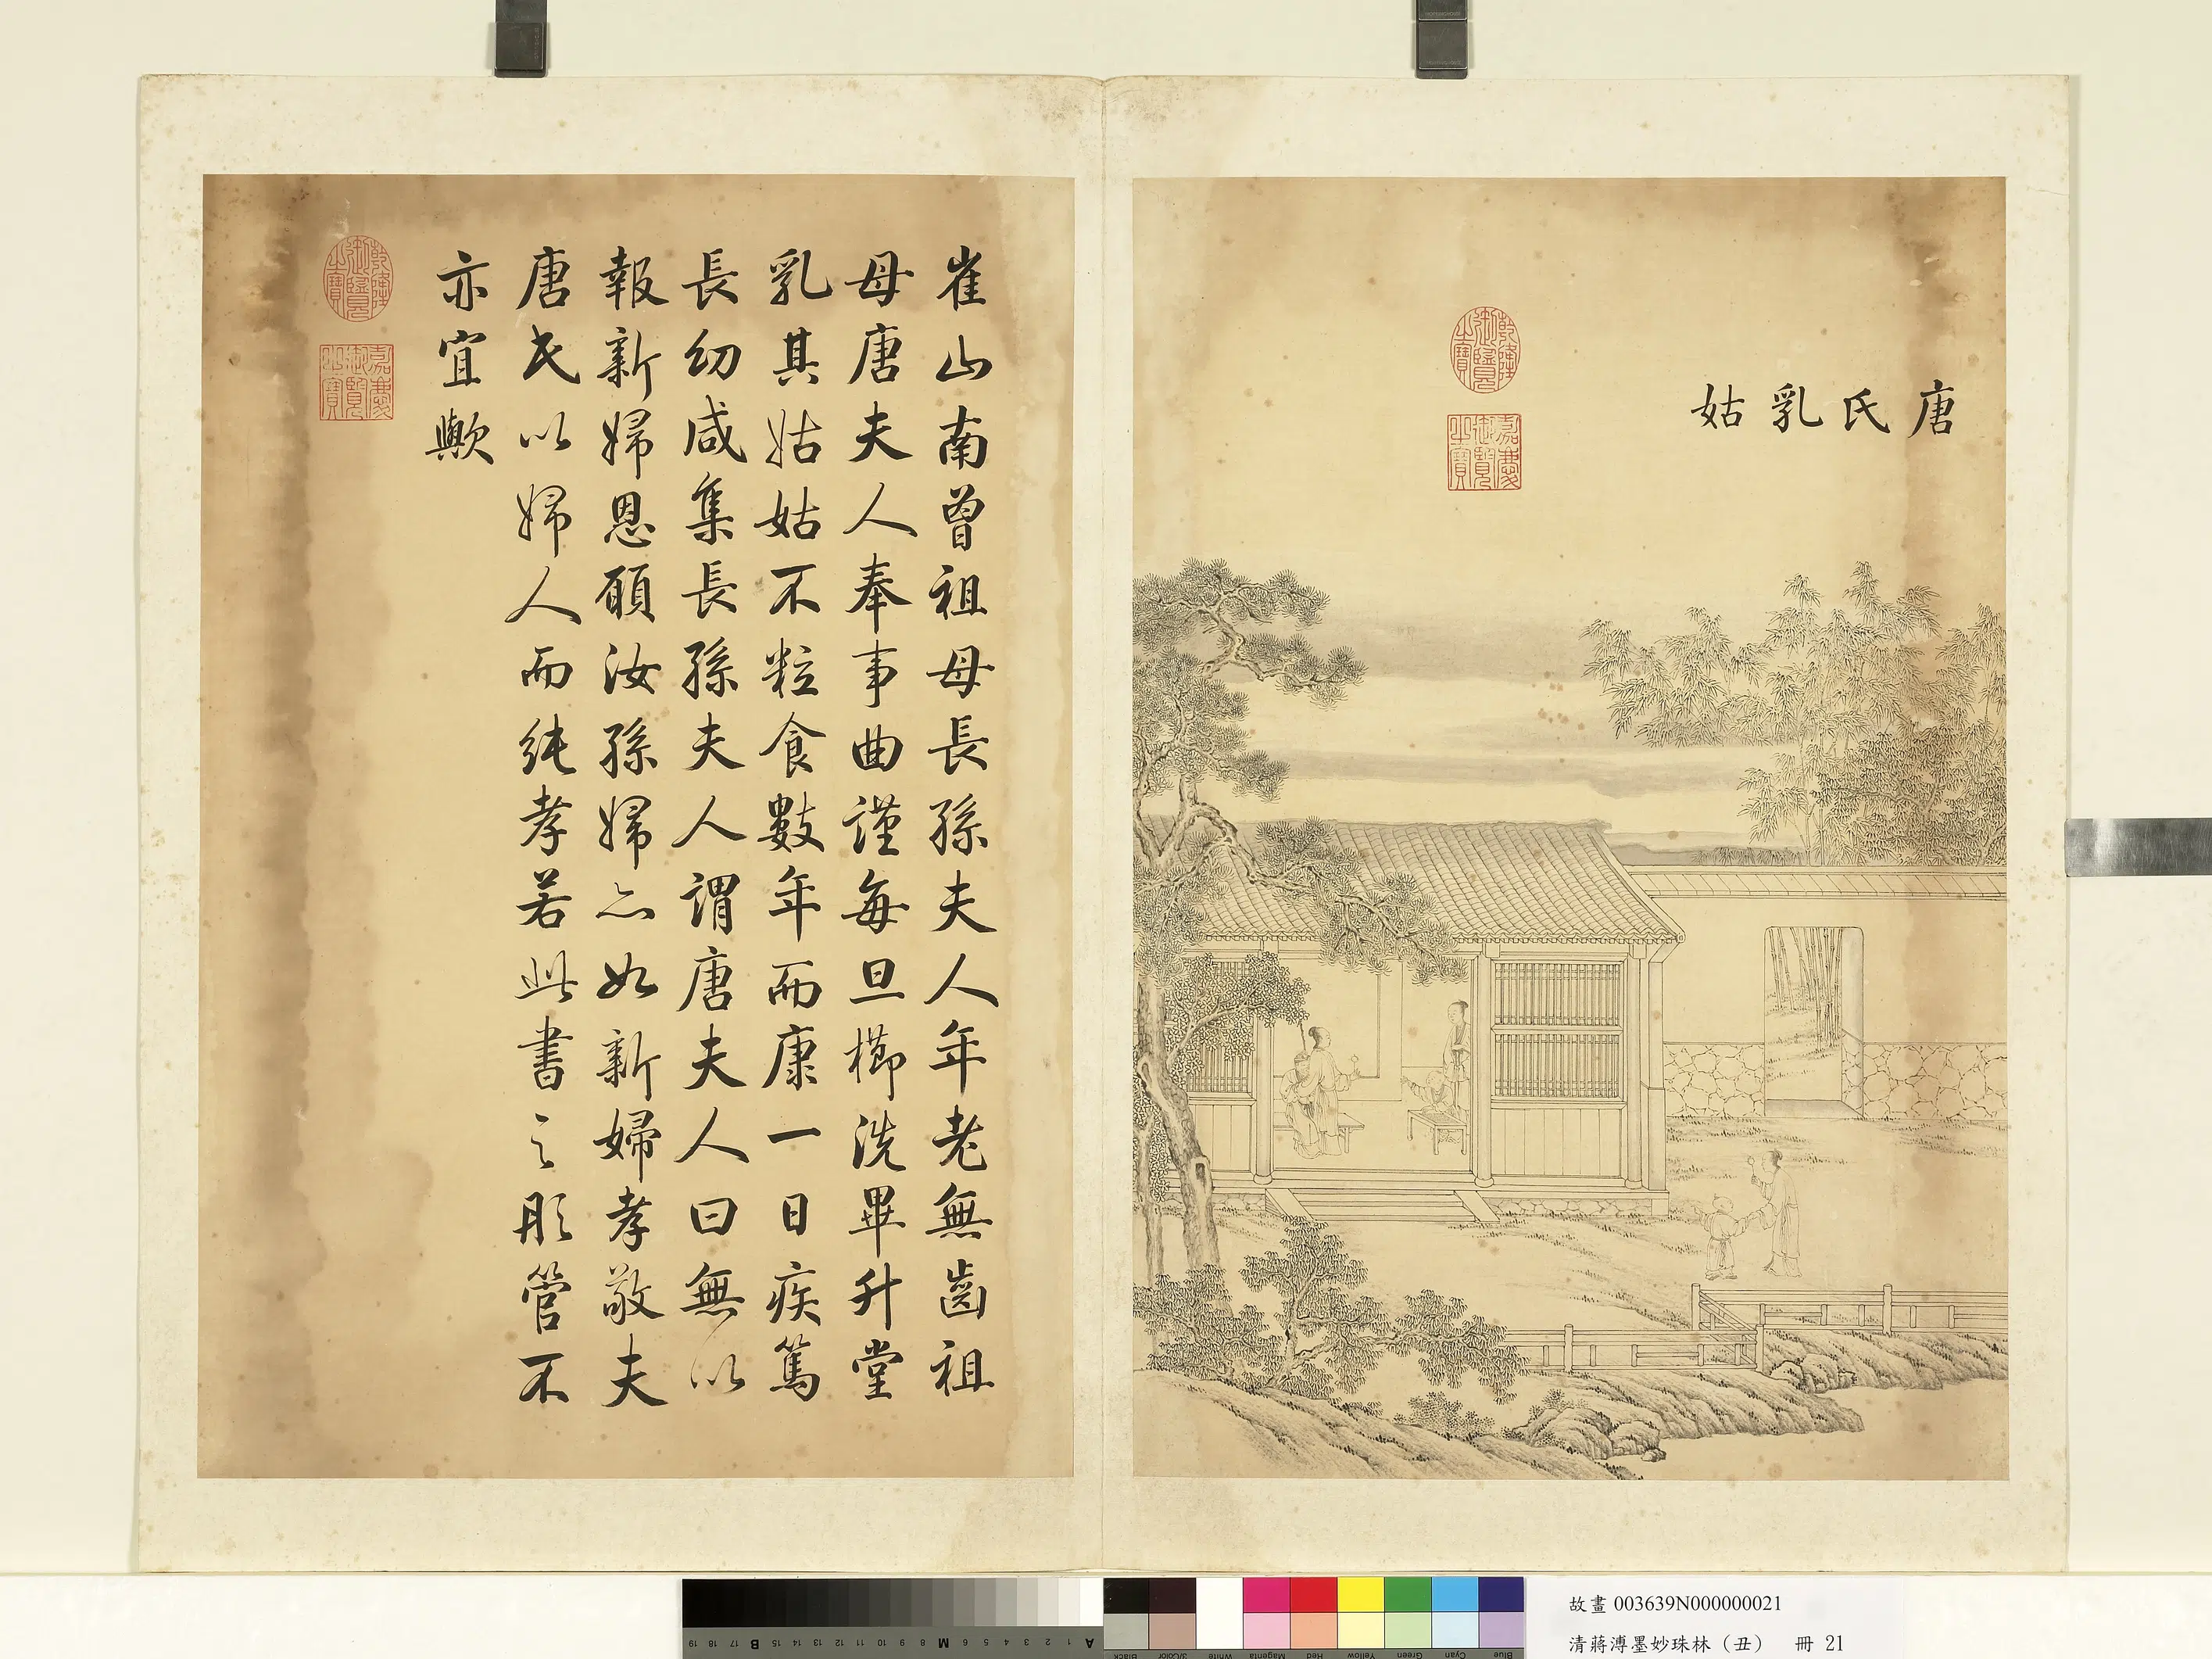 唐氏乳姑
乾隆御覽之寶
嘉慶御覽之寶
崔山南曾祖母長孫夫人年老無齒祖
母唐夫人奉事曲謹每旦櫛洗畢升堂
乳其姑姑不粒食數年而康一日疾篤
長幼咸集長孫夫人謂唐夫人曰無以
報新婦恩願汝孫婦亦如新婦孝敬夫
唐氏以婦人而純孝若此書之彤管不
亦宜歟
乾隆御覽之寶
嘉慶御覽之寶
故畫 003639N000000021
清蔣溥墨妙珠林（丑） 冊 21
19 18 17 B 16 15 14 13 12 11 10 9 8 M 7 6 5 4 3 2 1 A
Black 3/Color White Magenta Red Yellow Green Cyan Blue